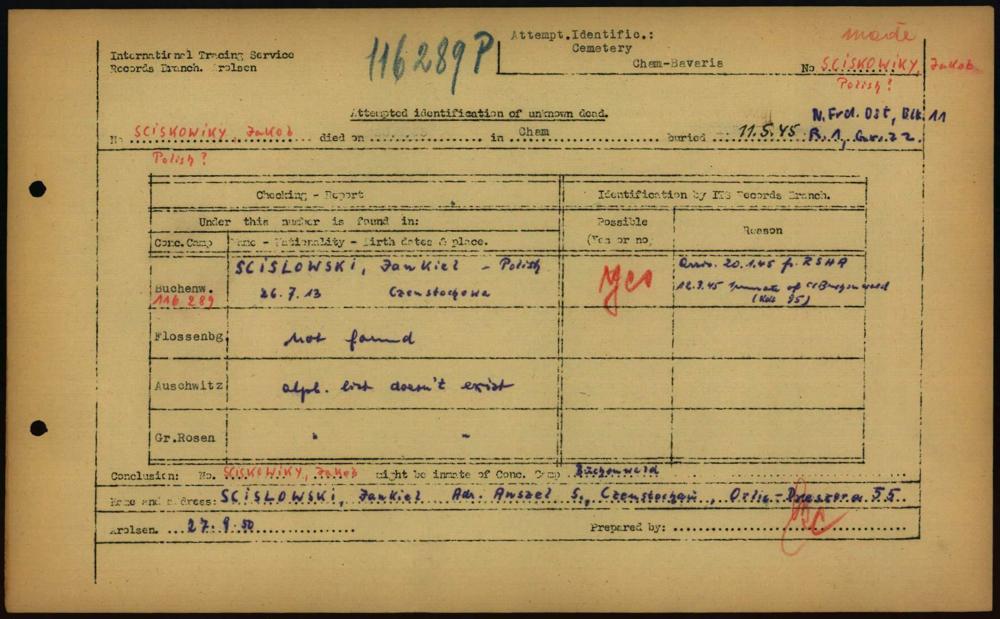 116289P
Attempt.Identific.:
Cemetery
Cham-Bavaria
made
No SCISKOWIKY, Jakob
Polish?
International Tracing Service
Records Branch. Arolsen
Attempted identification of unknown dead.
No SCISKOWIKY, Jakob died on in Cham buried 11.5.45 N. Frdl. Ost, Blk. 11
R. 1, 22
Polish?
Checking - Report
Identification by ITS Records Branch.
Under this number is found in:
Possible
(Yes or no)
Reason
Conc.Camp
Name - Nationality - Birth dates & place.
Buchenw.
116 289
SCISLOWSKI, Jankiel - Polish
26.7.13 Czenstochowa
Yes
20.1.45 RSHA
12.3.45 inmate of
Flossenbg.
not found
Auschwitz
alph. list doesn't exist
Gr.Rosen
" "
Conclusion: No. SCISKOWIKY, Jakob might be inmate of Conc. Camp Buchenwald
Name and address: SCISLOWSKI, Jankiel Adr. Anszel S., 55
Arolsen. 27.9.50
Prepared by: